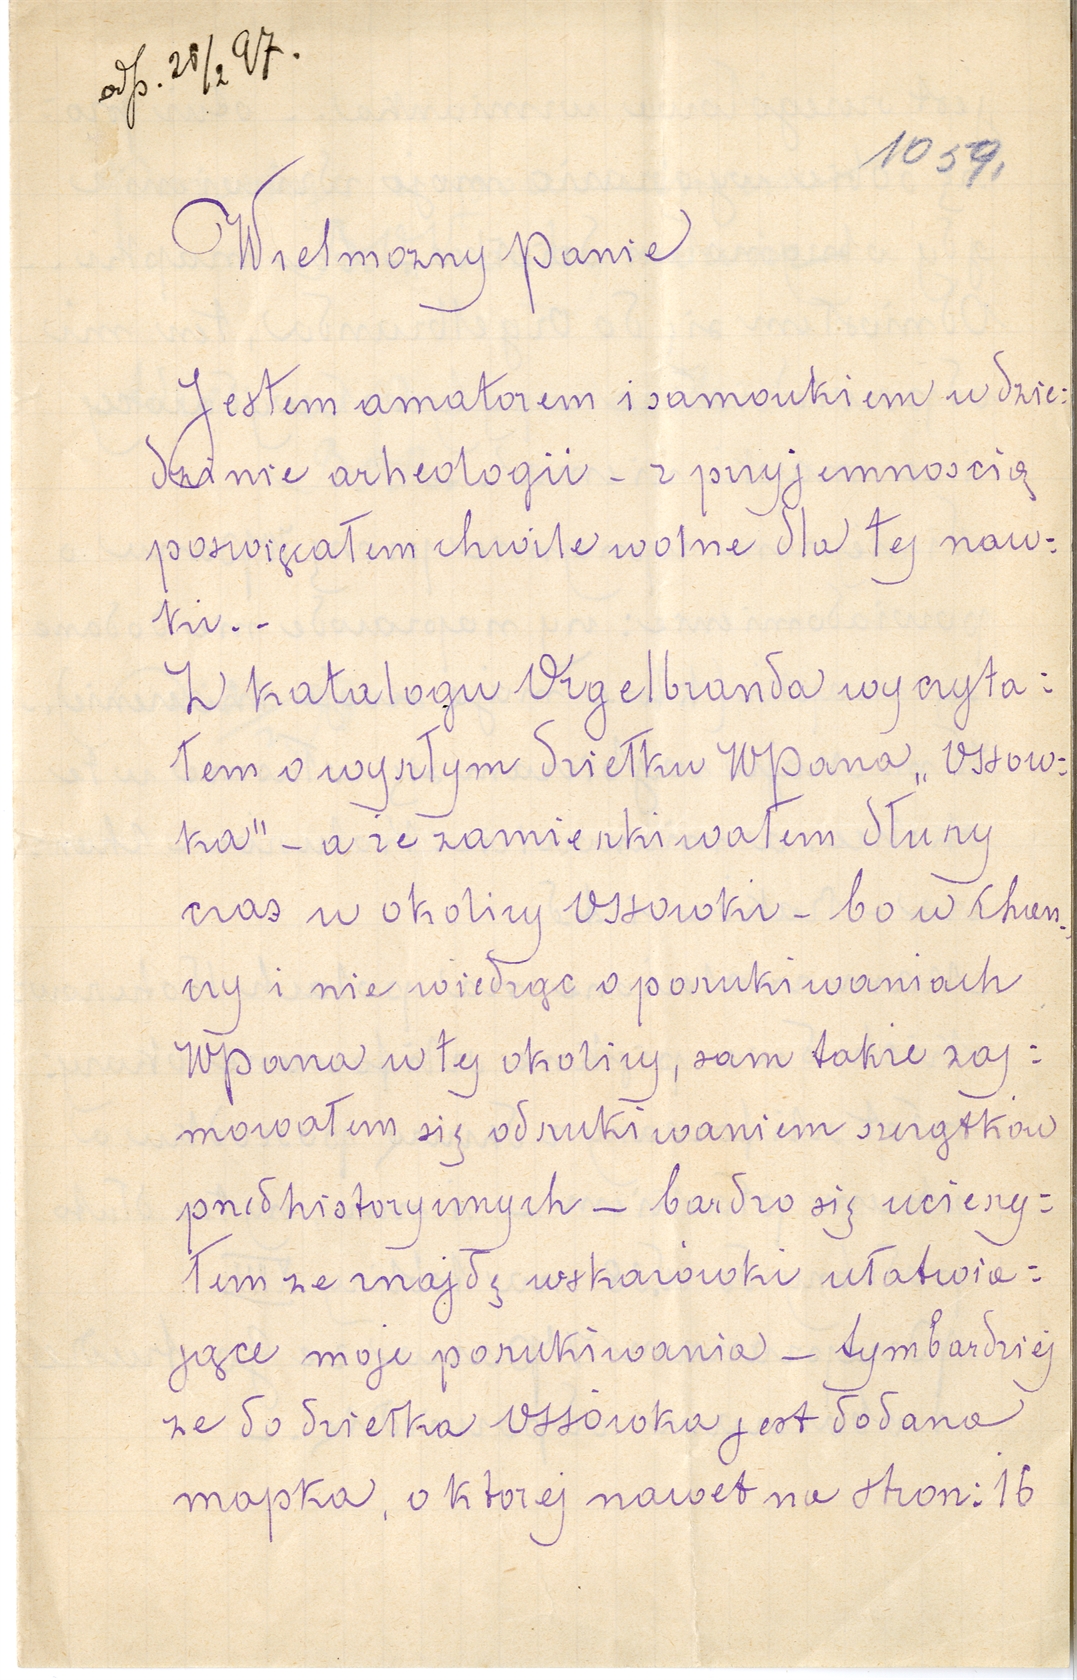 odp. 28/2 97.
1059.
Wielmozny Panie
Jestem amatorem i samoukiem w dzie:
dzinie arheologii – z przyjemnoscią
poswięcałem chwile wolne dla tej nau:
ki. –
Z katalogu Orgelbranda wyczyta:
łem o wyszłym dziełku WPana „Ossow:
ka" – a że zamieszkiwałem dłuzy
czas w okolicy Ossowki – bo w Chęn:
cy i nie wiedząc o poszukiwaniach
WPana w tej okolicy, sam także zaj:
mowałem się odszukiwaniem szczątków
przedhistorycznych – bardzo się ucieszy:
łem ze znajdę wskazówki ułatwia:
jące moje poszukiwania – tymbardziej
ze do dziełka Ossówka jest dodana
mapka, o ktorej nawet na stron: 16